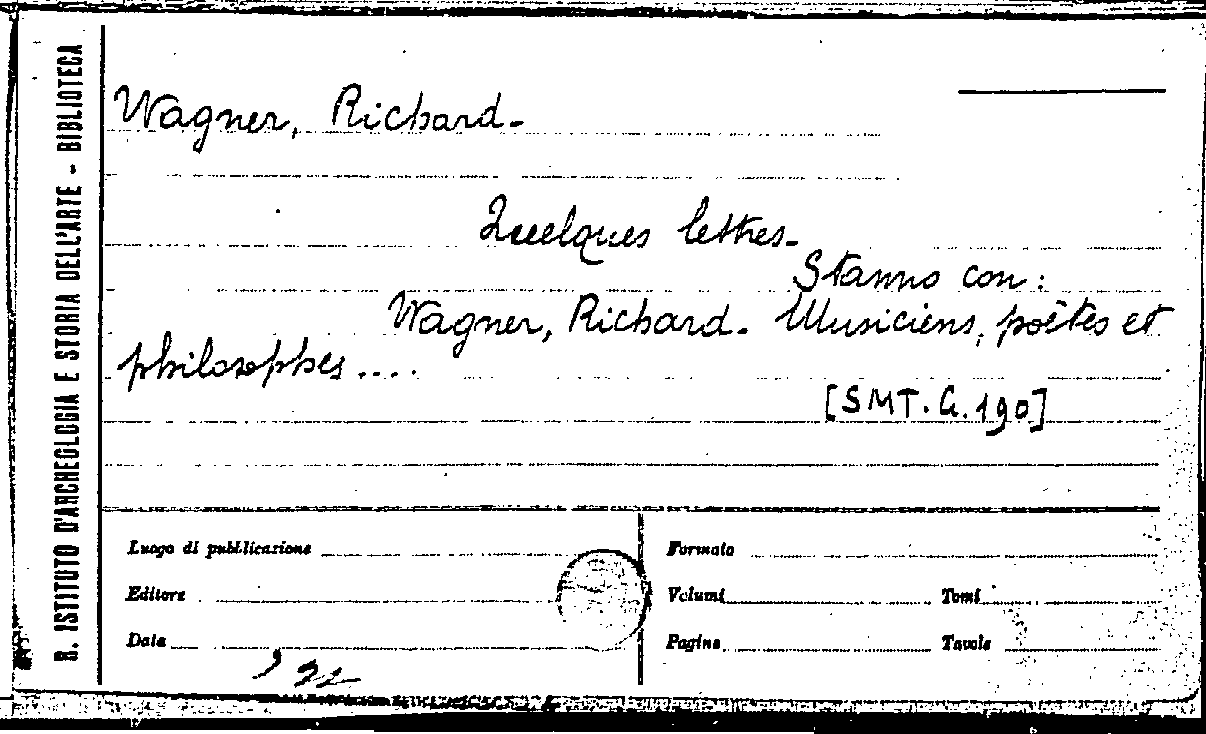 R. ISTITUTO D'ARCHEOLOGIA E STORIA DELL'ARTE - BIBLIOTECA
Wagner, Richard.-
Quelques lettres.-
Stanno con:
Wagner, Richard. Musiciens, poètes et
philosophes....
[SMT.G.190]
Luogo di pubblicazione
Editore
Data
Formato
Volumi Tomi
Pagine Tavole